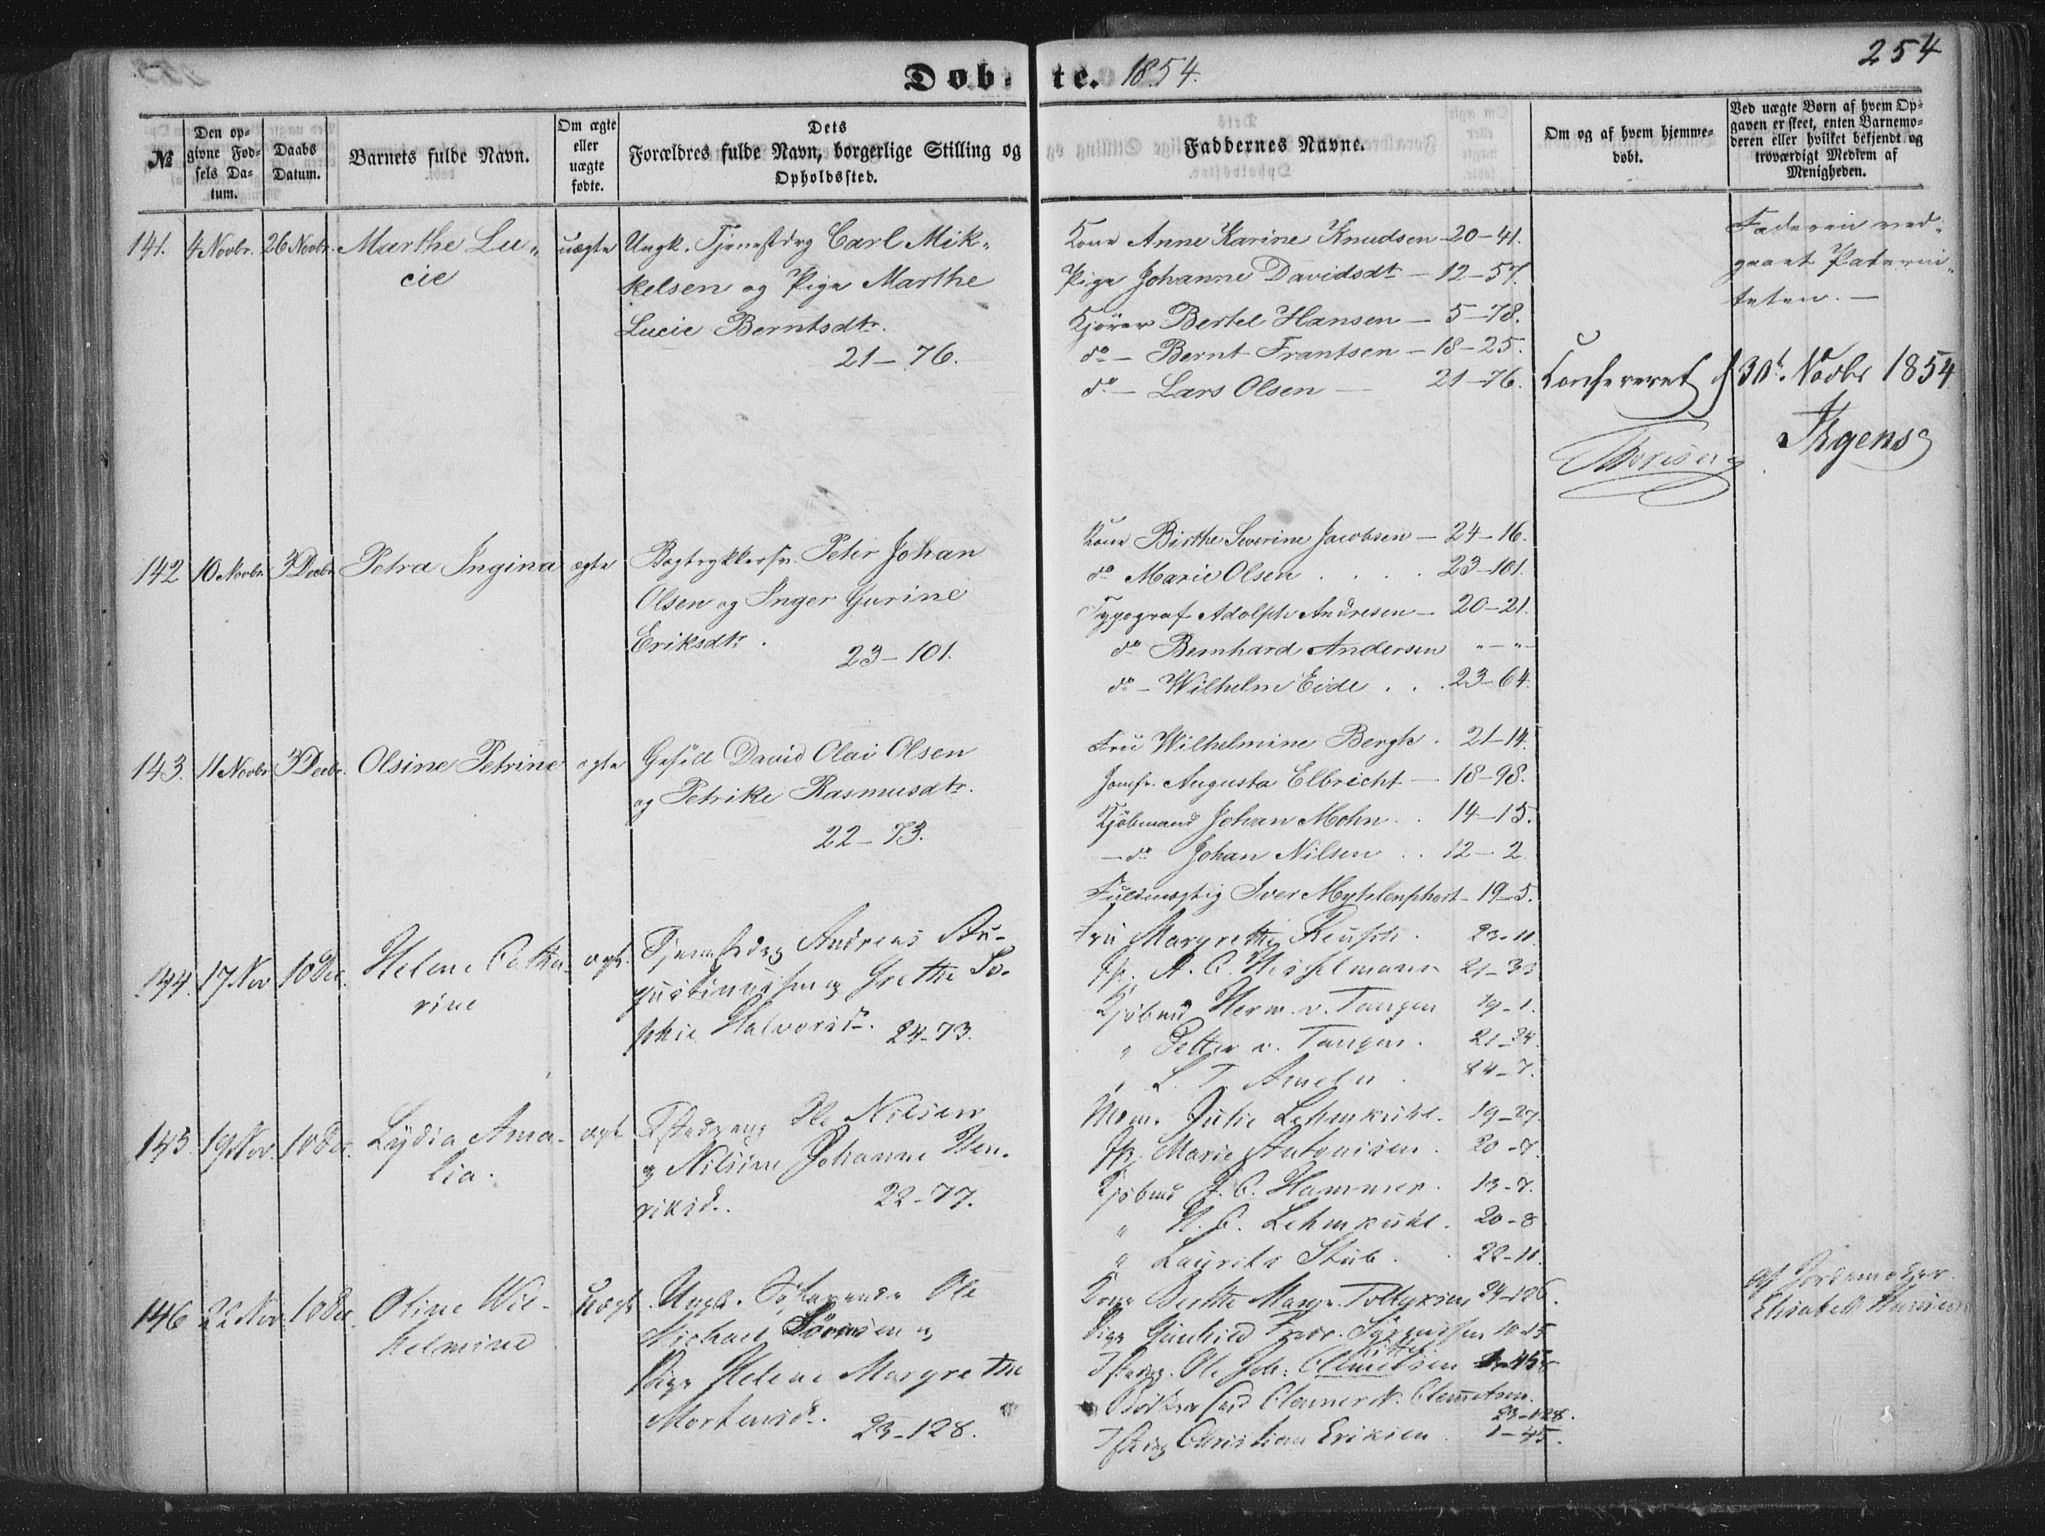 254
Døbte. 1854.
№
Den op-
givne Fød-
sels Da-
tum.
Daabs
Datum.
Barnets fulde Navn.
Om ægte
eller
uægte
fødte.
Dets
Forældres fulde Navn, borgerlige Stilling og
Opholdssted.
Faddernes Navne.
Om og af hvem hjemme-
døbt.
Ved uægte Børn af hvem Op-
gaven er skeet, enten Barnemo-
deren eller hvilket bekjendt og
troværdigt Medlem af
Menigheden.
141. 4 Novbr. 26 Novbr. Marthe Lu-
cie
uægte
Ungk. Tjenestdrg Carl Mik-
kelsen og Pige Marthe
Lucie Berntsdtr.
21-76.
Kone Anne Karine Knudsen - 20-41.
Pige Johanne Davidsdt - 12-57.
Kjører Bertel Hansen - 5-78.
do - Bernt Frantsen - 18-25.
do - Lars Olsen - 21-76.
Faderen ved-
gaaet Paterni-
teten. -
Confereret d 30t Novbr 1854
142 10 Novbr. 3 Decbr. Petra Ingina ægte
Bogtrykkersv. Peter Johan
Olsen og Inger Gurine
Eriksdtr.
23-101.
Kone Birthe Severine Jacobsen - 24-16.
do Marie Olsen . . . . 23-101.
Typograf Adolph Andresen - 20-21.
do Bernhard Andersen "-"-
do - Wilhelm Eide . . . 23-64.
143. 11 Novbr. 3 Decbr. Olsine Petrine ægte
Gesell David Olai Olsen
og Petrike Rasmusdtr.
22-73.
Fru Wilhelmine Bergh . 21-14.
Jomfr. Augusta Elbricht - 18-98.
Kjøbmand Johan Mohn . . 14-15.
- do Johan Nilsen . . 12-2.
Fuldmægtig Iver Myhlenphort - 19-5.
144. 17 Nov 10 Dec. Helene Catha-
rine
ægt.
Tjenestedrg Andreas Au-
gustinussen og Grethe So-
phie Halvorsd. 24-73.
Fru Margrethe Reusch . 23-11.
A. C. Hesselmann 21-33
Kjøbmd Herm. v. Tangen 19-1.
" Petter v. Tangen. 21-24.
" L. T. Ameln . 24-7.
145. 19 Nov 10 Dec. Lydia Ama-
lia.
ægt
Ole Nilsen
og Nilsine Johanne Hen-
riksd. 22-77.
Mdm. Julie Lehmkuhl. 19-27.
Marie Antonisen. 20-7.
Kjøbmd J. C. Hammer. 13-7.
" H. C. Lehmkuhl. 20-8
" Laurits Stub. . 22-11.
146 22 Nov 10 Dec. Oline Wil-
helmine
uægt.
Ungk. Søfarende Ole
Michael Sørensen og
Pige Helene Margrethe
Mortensd. 23-128.
Kone Berthe Margr. Tollefsen 24-106.
Pige Gunhild Fredr. Sørensen 10-15
Ole Joh: Clemetsen 1-45
Clemetsen.
23-128.
Christian Eriksen . 1-45.
af Jordemoder
Elisabeth Hansen